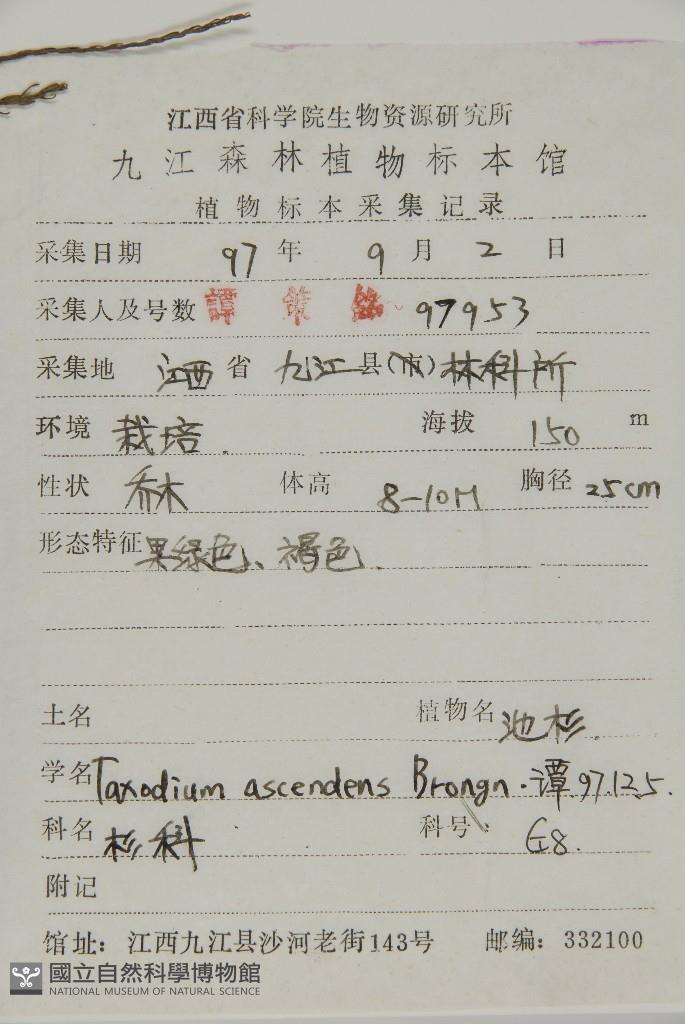 江西省科学院生物资源研究所
九江森林植物标本馆
植物标本采集记录
采集日期 97 年 9 月 2 日
采集人及号数 譚策铭 97953
采集地 江西 省 九江 县(市) 林科所
环境 栽培. 海拔 150 m
性状 乔木 体高 8-10M 胸径 25cm
形态特征 果绿色、褐色.
土名 植物名 池杉.
学名 Taxodium ascendens Brongn. 谭.97.12.5.
科名 杉科 科号: G8.
附记
馆址: 江西九江县沙河老街143号 邮编: 332100
國立自然科學博物館
NATIONAL MUSEUM OF NATURAL SCIENCE